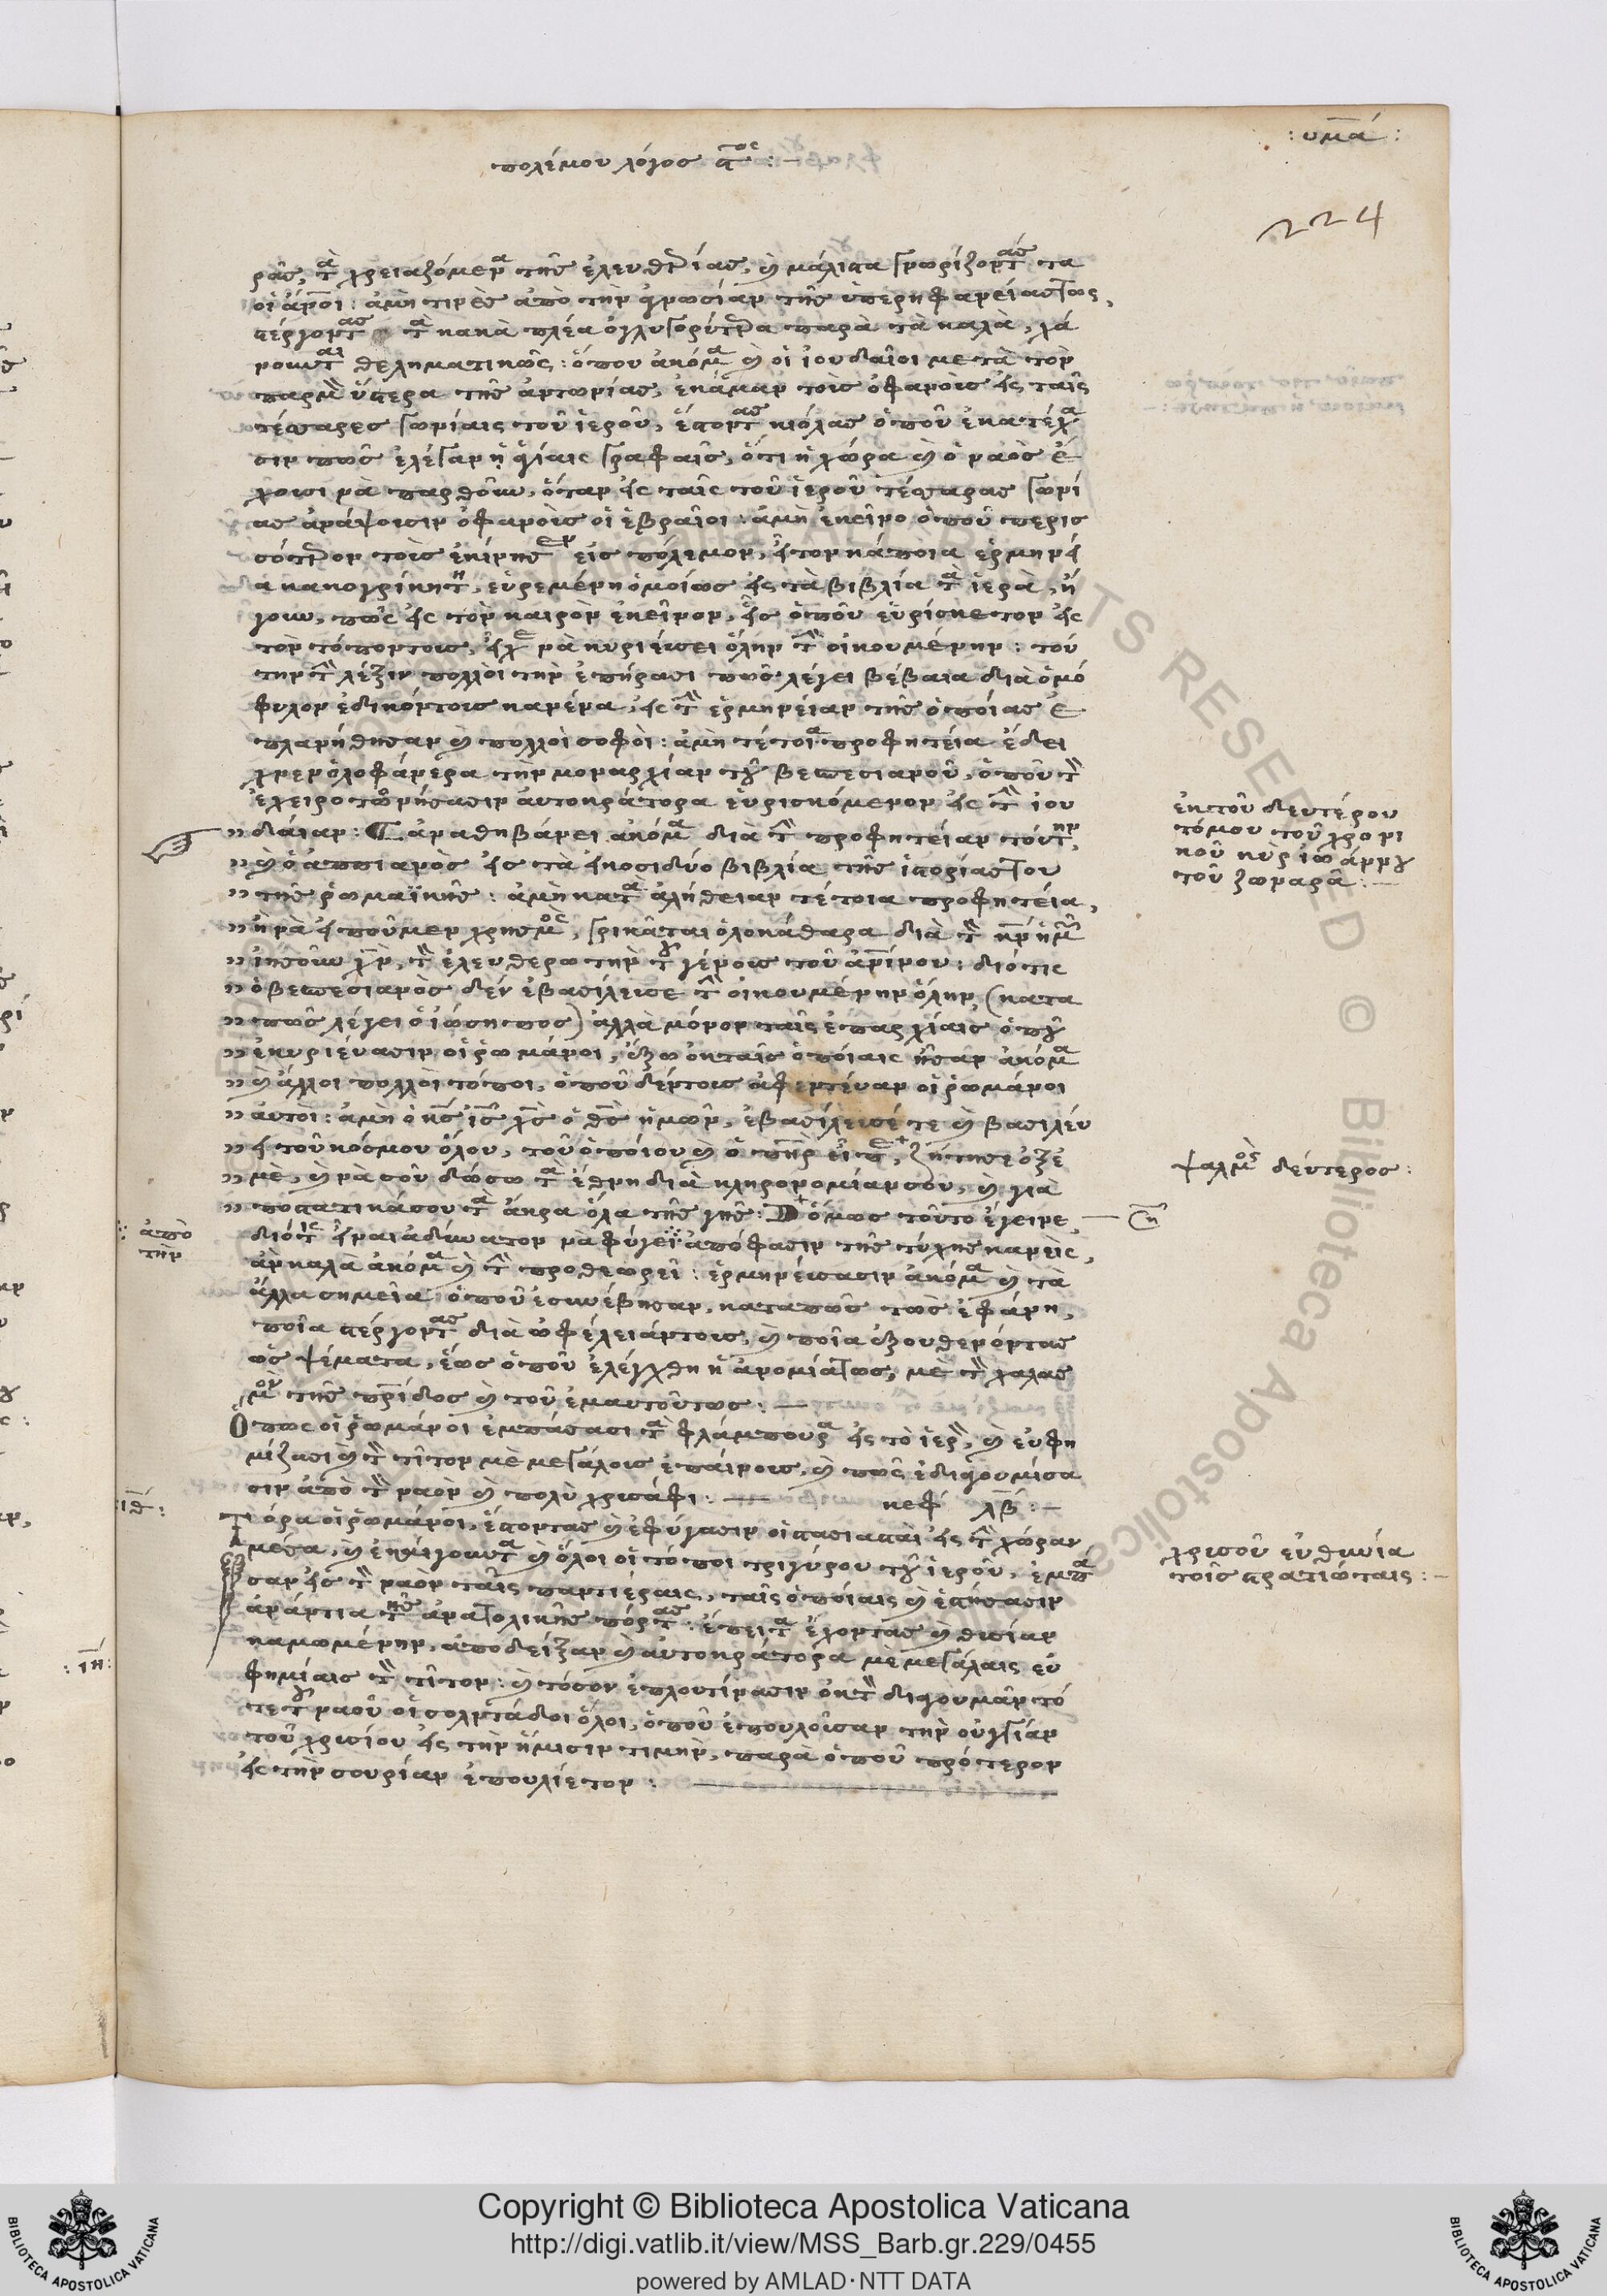 : υμα :
πολέμου λόγος ϛος :—
224
ρας, τὰ χρειαζόμενα της ἐλευθερίας, καὶ μάλιστα γνωρίζοντας τα
οἱ ἄνοι: ἀμὴ τινὲς ἀπὸ τὴν γνωσίαν τῆς ὑπερηφανείας τως,
στέργοντας τὰ κακὰ πλέα ὀγλυγορύτερα παρὰ τὰ καλὰ, χά
νουνται θεληματικῶς: ὅπου ἀκόμα καὶ οἱ ἰουδαῖοι με τὰ τὸν
παρμὸ ὕστερα τῆς ἀντωνίας, ἐκάμαν τοὶς ὀφανοὶς εἰς ταῖς
τέσσαρες γωνίαις τοῦ ἱεροῦ, ἔστοντας κιόλας ὁποῦ ἐκατέχα
σιν πῶς ἐλέγαν ᾑ ἁγίαις γραφαῖς, ὅτι ἡ χώρα καὶ ὁ ναὸς ἔ
χουσι νὰ παρθοῦν, ὅταν εἰς ταῖς τοῦ ἱεροῦ τέσσαρας γωνί
ας ἀνάψουσιν ὀφανοὶς οἱ ἑβραῖοι: ἀμὴ ἐκεῖνο ὁποῦ περισ
σότερον τοὶς ἐκίνησεν εἰς πόλεμον, ἦτον κάποια ἑρμηνεί
α κακογρίκητη, εὑρεμένη ὁμοίως εἰς τὰ βιβλία τὰ ἱερὰ, ἤ
γουν, πῶς εἰς τὸν καιρὸν ἐκεῖνον, εἷς ὁποῦ εὑρίσκετον εἰς
τὸν τόπον τους, εἶχε νὰ κυριέψει ὅλην τὴν οἰκουμένην: τού
την τὴν λέξιν πολλοὶ τὴν ἐπήρασι πῶς λέγει βέβαια διὰ ὁμό
φυλον ἐδικόν τους κανένα, εἰς τὴν ἑρμηνείαν τῆς ὁποίας ἐ
πλανήθησαν καὶ πολλοὶ σοφοὶ: ἀμὴ τέτοια προφητεία ἔδει
χνεν ὁλοφάνερα τὴν μοναρχίαν τοῦ βεσπεσιανοῦ, ὁποῦ τὸν
ἐχειροτωνήσασιν αὐτοκράτορα εὑρισκόμενον εἰς τὴν ἰου
δαίαν: ἀναθηβάνει ἀκόμα διὰ τὴν προφητείαν τούτην,
καὶ ὁ ἀππιανὸς εἰς τὰ εἰκοσιδύο βιβλία τῆς ἱστορίας του
τῆς ῥωμαϊκῆς: ἀμὴ κατὰ ἀλήθειαν τέτοια προφητεία,
ἢ νὰ εἰποῦμεν χρησμὸς, γρικᾶται ὁλοκάθαρα διὰ τὸν κν ἡμῶν
ἰησοῦν χν, τὸν ἐλευθερωτὴν τοῦ γένους τοῦ ἀνίνου: διότις
ὁ βεσπεσιανὸς δὲν ἐβασίλεισε τὴν οἰκουμένην ὅλην, (κατα
πῶς λέγει ὁ ἰώσηπος) ἀλλὰ μόνον ταῖς ἐπαρχίαις ὁποῦ
ἐκυριεύασιν οἱ ῥωμάνοι, ἔξω ἐκ ταῖς ὁποίαις ἦσαν ἀκόμα
καὶ ἄλλοι πολλοὶ τόποι, ὁποῦ δέν τους ἀφεντεύαν οἱ ῥωμάνοι
αὐτοὶ: ἀμὴ ὁ κς ις χς ὁ θς ἡμῶν, ἐβασίλεισέ τε καὶ βασιλεύ
ει τοῦ κόσμου ὅλου, τοῦ ὁποίου καὶ ὁ πηρ εἶπε, ζήτησε ὀξέ
μὲ, καὶ νὰ σοῦ δώσω τὰ ἔθνη διὰ κληρονομίαν σου, καὶ γιὰ
ποστατικάσου τὰ ἄκρα ὅλα τῆς γῆς: ὅμως τοῦτο ἔγεινε,
διότις εἶναι ἀδύνατον νὰ φύγει ἀπόφασιν τῆς τύχης κανεὶς,
ἂν καλὰ ἀκόμα καὶ τὴν προθεωρεῖ: ἑρμηνεύσασιν ἀκόμα καὶ τὰ
ἄλλα σημεῖα ὁποῦ ἐσυνέβησαν, καταπῶς τῶς ἐφάνη,
ποῖα στέργοντας διὰ ὠφέλειάν τους, καὶ ποῖα ἐξουθενόντας
ὡς ψέματα, ἕως ὁποῦ ἐλέγχθη ἡ ἀνομία τως, μὲ τὸν χαλας
μὸν τῆς πρίδος καὶ τοῦ ἐμαυτοῦ τως: —
Ὅπως οἱ ῥωμάνοι ἐμπάσασι τὰ φλάμπουρα εἰς τὸ ἱερὸν, καὶ εὐφη
μίζασι καὶ τὸν τίτον μὲ μεγάλοις ἐπαίνοις, καὶ πῶς ἐδιαγουμίσα
σιν ἀπὸ τὸν ναὸν καὶ πολὺ χρισάφι: — κεφ λβ: —
Τιόρα οἱ ῥωμάνοι, ἔστοντας καὶ ἐφύγασιν οἱ στασιασταὶ εἰς τὴν χώραν
μέσα, καὶ ἐκαίγουντα καὶ ὅλοι οἱ τόποι τριγύρου τοῦ ἱεροῦ, ἐμπά
σαν εἰς τὸν ναὸν ταῖς παντιέραις, ταῖς ὁποίαις καὶ ἐστήσασιν
ἀνάντια τῆς ἀνατολικῆς πόρτας: ἔπειτα ἔχοντας καὶ θισίαν
καμωμένην, ἀποδείξαν καὶ αὐτοκράτορα μὲ μεγάλαις εὐ
φημίαις τὸν τίτον: καὶ τόσον ἐπλουτίνασιν ἐκ τὸν διαγουμᾶν τό
τε τοῦ ναοῦ οἱ σολντάδοι ὅλοι, ὁποῦ ἐπουλοῦσαν τὴν οὐγγίαν
τοῦ χρισίου εἰς τὴν ἥμισιν τιμὴν, παρὰ ὁποῦ πρότερον
εἰς τὴν σουρίαν ἐπουλίετον: —
ἐκ τοῦ δευτέρου
τόμου τοῦ χρονι
κοῦ κὺρ ἰωάννου
τοῦ ζωναρᾶ: —
ψαλμὸς δεύτερος:
ἀπὸ
τὴν
:ιθ:
χρισοῦ εὐθηνία
τοῖς στρατιώταις: —
:ιη:
Copyright © Biblioteca Apostolica Vaticana
http://digi.vatlib.it/view/MSS_Barb.gr.229/0455
powered by AMLAD·NTT DATA